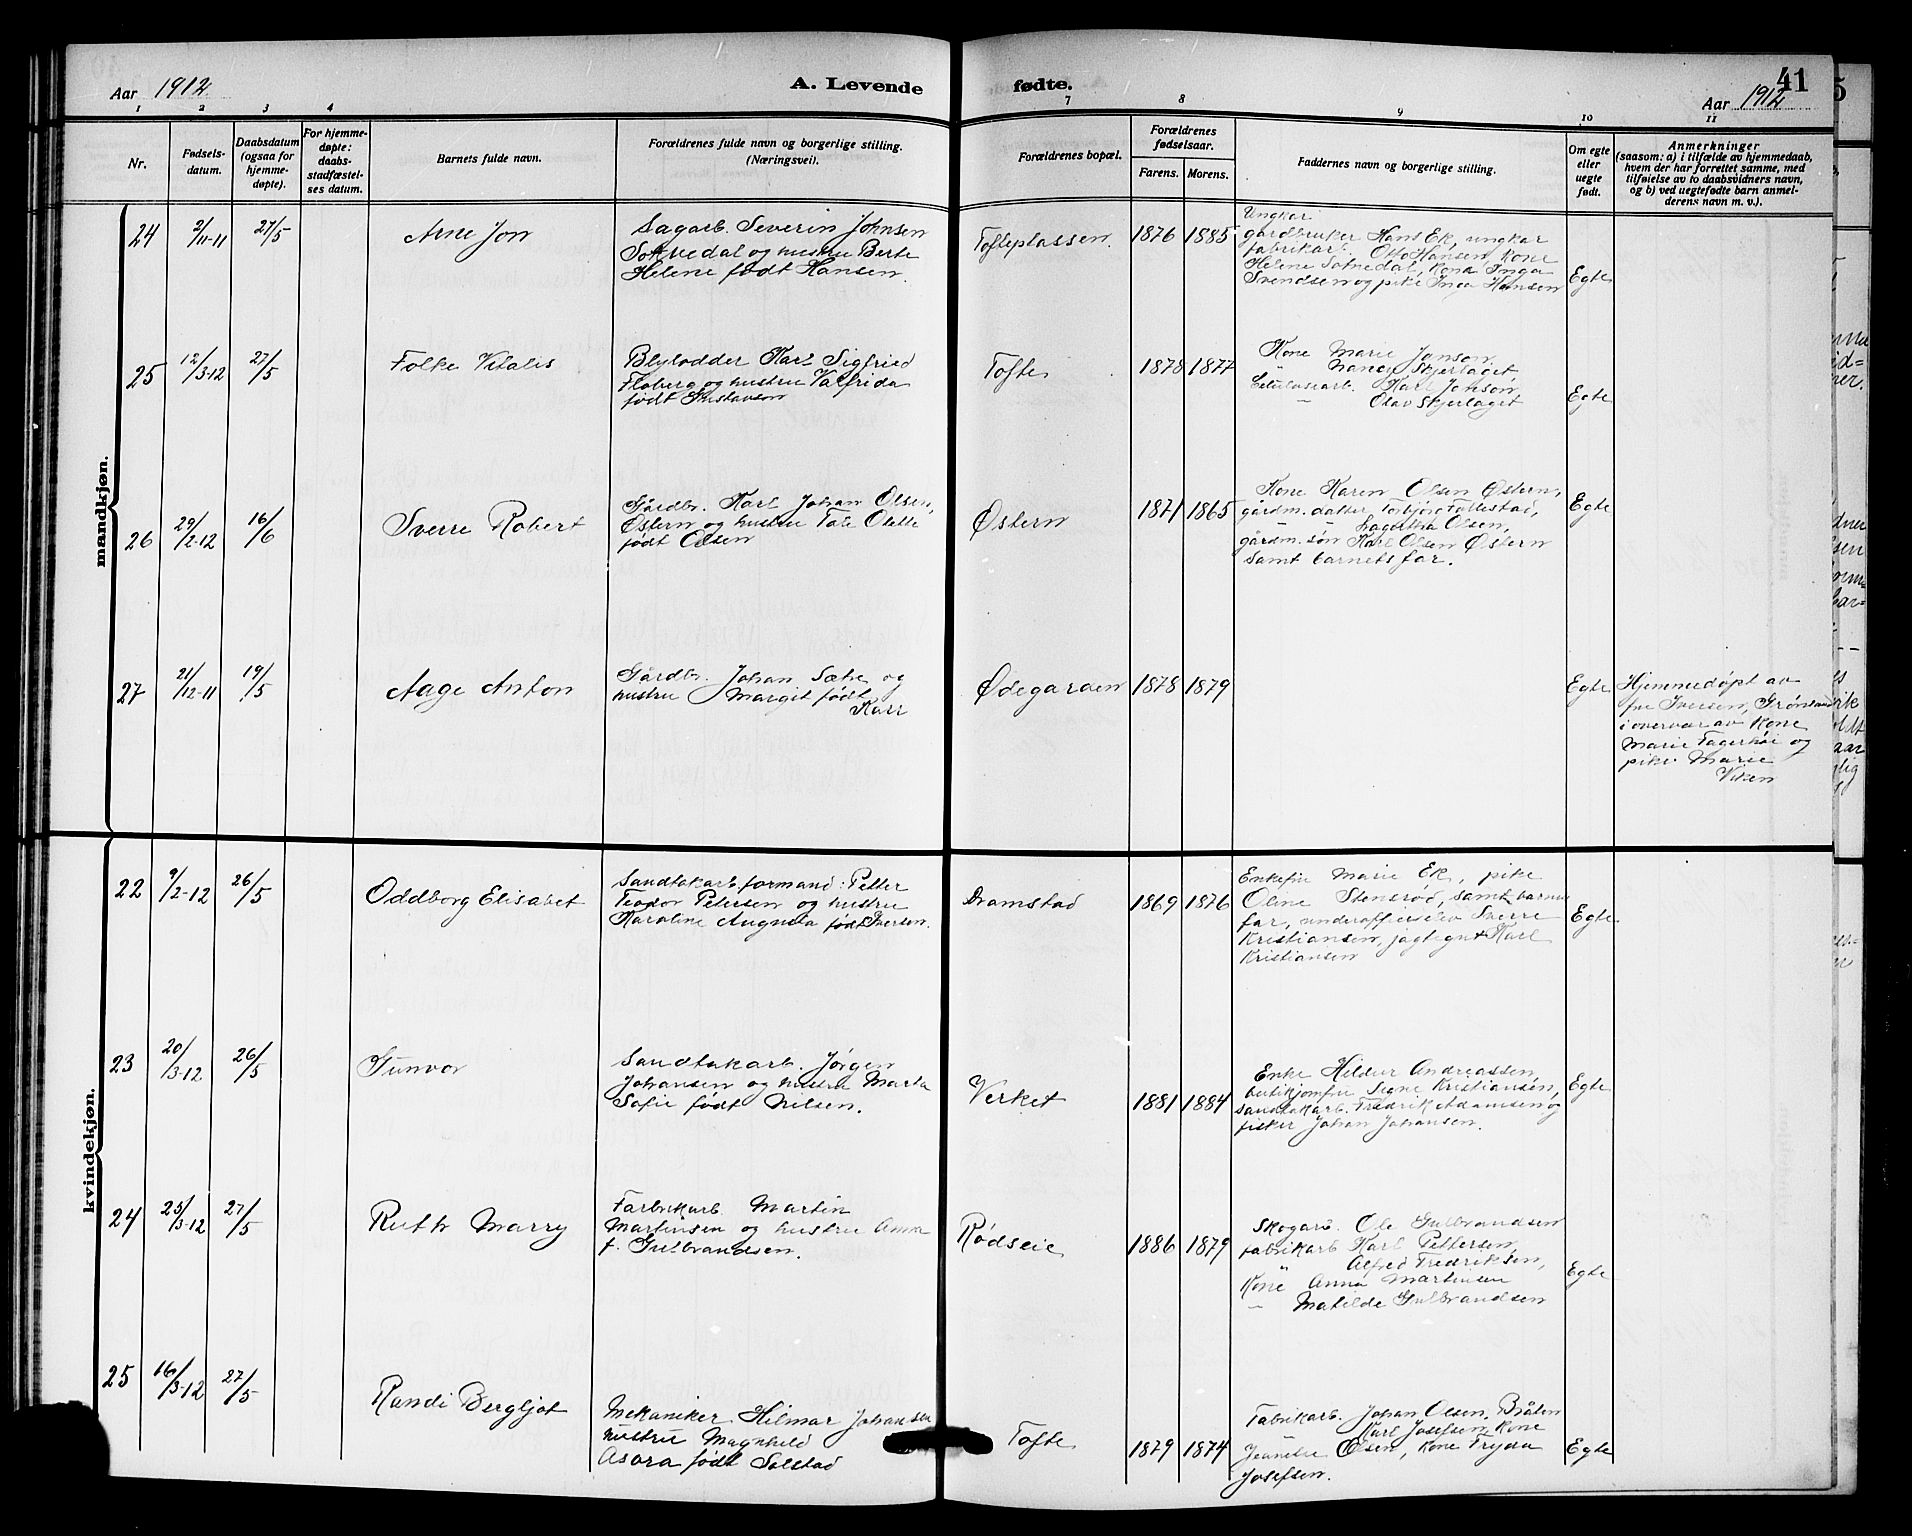 Aar 1912
A. Levende fødte.
41
Aar 1912
1 2 3 4 7 8 9 10 11
Nr.
Fødsels-
datum.
Daabsdatum
(ogsaa for
hjemme-
døpte).
For hjemme-
døpte:
daabs-
stadfæstel-
ses datum.
Barnets fulde navn.
Forældrenes fulde navn og borgerlige stilling.
(Næringsvei).
Forældrenes bopæl.
Forældrenes
fødselsaar.
Farens. Morens.
Faddernes navn og borgerlige stilling.
Om egte
eller
uegte
født.
Anmerkninger
(saasom: a) i tilfælde av hjemmedaab,
hvem der har forrettet samme, med
tilføielse av to daabsvidners navn,
og b) ved uegtefødte barn anmel-
derens navn m. v.).
mandkjøn.
24
2/11-11
27/5
Arne Jon
Sagarb. Severin Johnsen
Solvedal og hustru Berte
Helene født Hansen.
Tofteplassen.
1876 1885
Ungkar
gårdbruker Hans Ek, ungkar
fabrikar. Otto Hansen, kone
Helene Solvedal, kone Inga
Svendsen og pike Inga Hansen
Egte
25
12/3-12
27/5
Folke Vitalis
Blylodder Karl Sigfried
Floberg og hustru Valfrida
født Gustavson
Tofte
1878 1877
Kone Marie Jonson
" Nancy Skjerlaget
Celulosearb. Karl Jonson
" Olav Skjerlaget
Egte
26
29/2-12
16/6
Sverre Robert
Gårdbr. Karl Johan Olsen,
Østern og hustru Tale Olette
født Olsen
Østern
1871 1865
Kone Karen Olsen Østern,
gårdm. datter Torbjørg Follestad,
" " Lagertha Olsen,
gårdm. søn Karl Olsen Østern
samt barnets far.
Egte
27
21/12-11
19/5
Aage Anton
Gårdbr. Johan Sætre og
hustru Margit født
Karr
Ødegarden
1878 1879
Egte
Hjemmedøpt av
fru Iversen, Grønsand
i overvær av kone
Marie Fagerhøi og
pike Marie
Viken
kvindekjøn.
22
9/2-12
26/5
Oddborg Elisabet
Sandtakarb.formand: Petter
Teodor Petersen og hustru
Karoline Augusta født Iversen.
Dramstad
1869 1876
Enkefru Marie Ek, pike
Oline Stensrød, samt barnets
far, underofficerselev Sverre
Kristiansen, jagtegnt Karl
Kristiansen
Egte
23
20/3-12
26/5
Gunvor
Sandtakarb. Jørgen
Johansen og hustru Marta
Sofie født Nilsen.
Verket
1881 1884
Enke Hildur Andreassen,
butikjomfru Signe Kristiansen,
sandtakarb. Fredrik Adamsen og
fisker Johan Johansen.
Egte
24
25/3-12
27/5
Ruth Marry
Fabrikarb. Martin
Martinsen og hustru Anna
f. Gulbrandsen.
Rødseie
1886 1879
Skogarb. Ole Gulbrandsen
fabrikarb Karl Pettersen,
" Alfred Fredriksen,
Kone Anna Martinsen
" Matilde Gulbrandsen
Egte
25
16/3-12
27/5
Randi Bergljot
Mekaniker Hilmar Johansen
hustru Magnhild
Asora født Solstad
Tofte
1879 1874
Fabrikarb. Johan Olsen, Bråten
" Karl Josefsen, kone
Jeanette Olsen, kone Fryda
Josefsen.
Egte